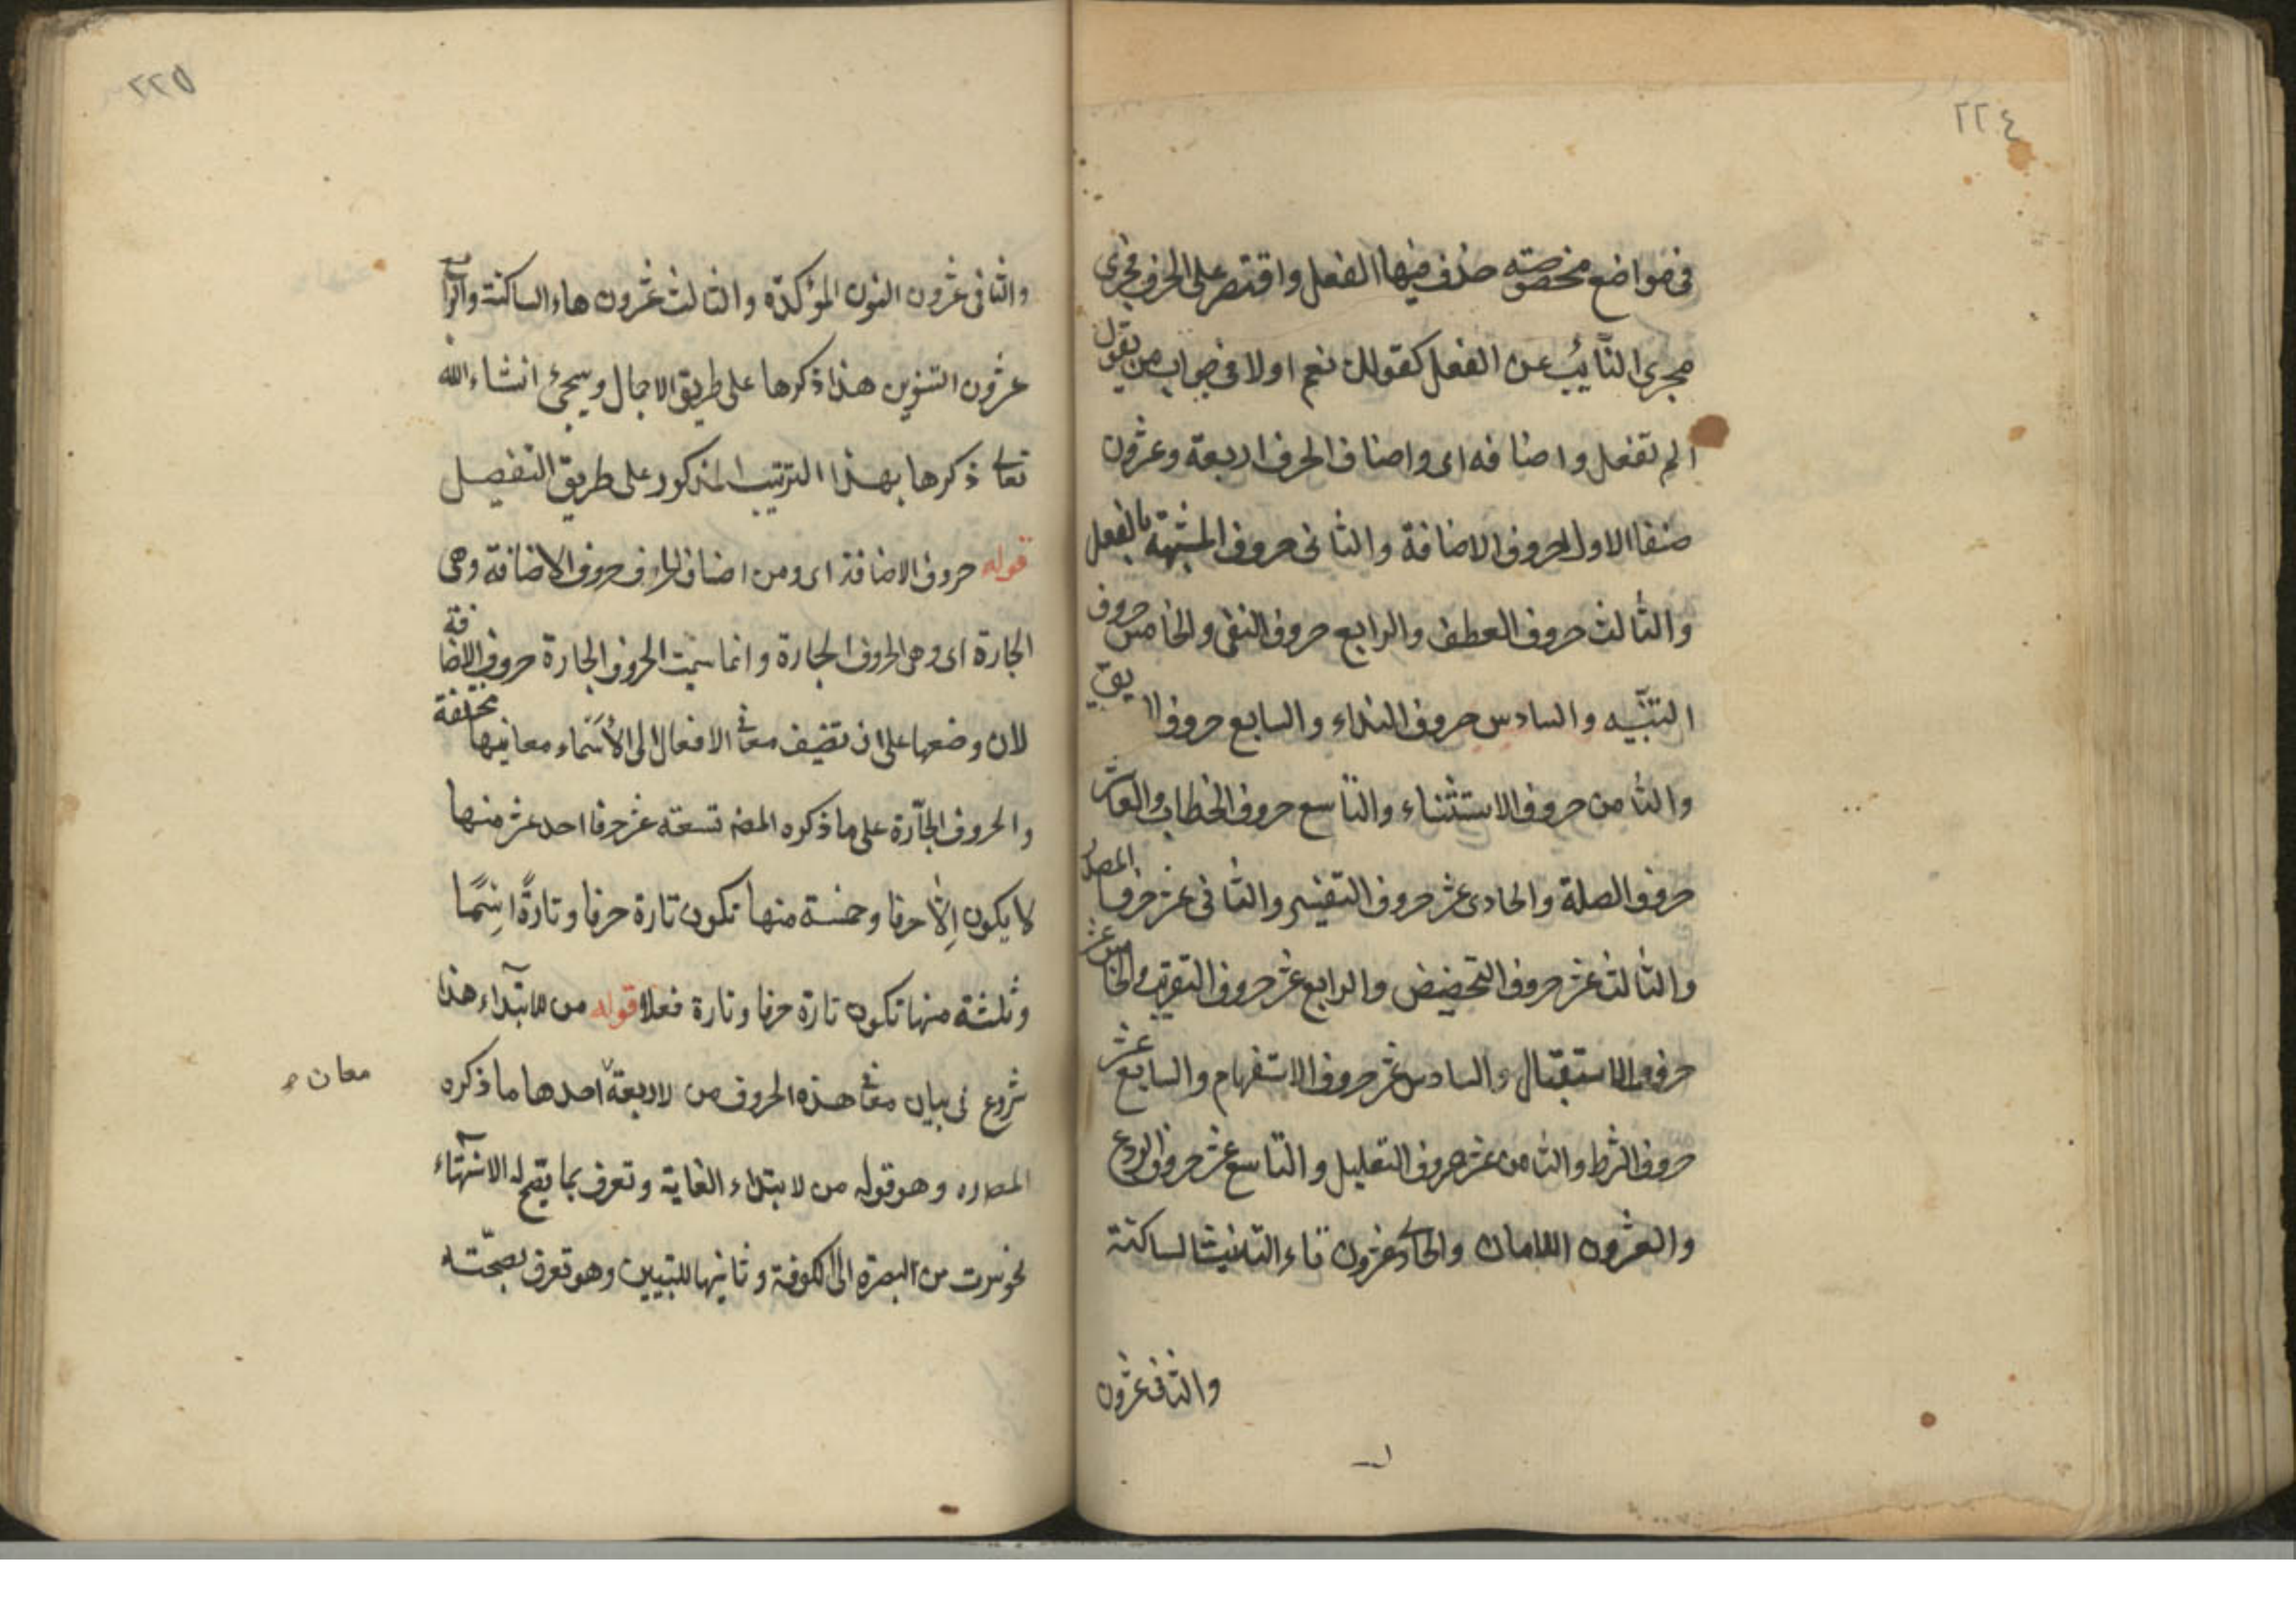 ٢٢٤
فى مواضع مخصوصة حذف فيها الفعل واقتصر على الحرف فجرى
مجرى النائب عن الفعل كقولك نعم او لا فى جواب من يقول
الم تفعل واصنافه اى واصناف الحرف اربعة وعشرون
صنفا الاول حروف الاضافة والثانى حروف المشبهة بالفعل
والثالث حروف العطف والرابع حروف النفى والخامس حروف
التنبيه والسادس حروف النداء والسابع حروف
والثامن حروف الاستثناء والتاسع حروف الخطاب والعاشر
حروف الصلة والحادى عشر حروف التفسير والثانى عشر حرفا المصدر
والثالث عشر حروف التحضيض والرابع عشر حروف التقريب والخامس عشر
حروف الاستقبال والسادس عشر حروف الاستفهام والسابع عشر
حروف الشرط والثامن عشر حروف التعليل والتاسع عشر حروف الردع
والعشرون اللامات والحادى عشرون تاء التانيث الساكنة
والثانى عشرون
٢٢٥
والثانى عشرون النون المؤكدة والثالث عشرون هاء الساكنة والرابع
عشرون التنوين هذا ذكرها على طريق الاجمال وسيجئ انشاء الله
تعالى ذكرها بهذا الترتيب المذكور على طريق التفصيل
قوله حروف الاضافة اى ومن اصناف الحرف حروف الاضافة وهى
الجارة اى وهى الحروف الجارة وانما سميت الحروف الجارة حروف الاضافة
لان وضعها على ان تضيف معانى الافعال الى الأسماء معانيها مختلفة
والحروف الجارة على ما ذكره المصـ تسعة عشر حرفا احد عشر منها
لا يكون إلا حرفا وخمسة منها تكون تارة حرفا وتارةً اسمًا
وثلثة منها تكون تارة حرفا وتارة فعلا قوله من للابتداء هذا
شروع فى بيان معانى هذه الحروف من لاربعة احدها ما ذكره
معان
وهو قوله من لابتداء الغاية وتعرف بما يصح له الانتهاء
نحو سرت من البصرة الى الكوفة وثانيها للتبيين وهو تعرف بصحته